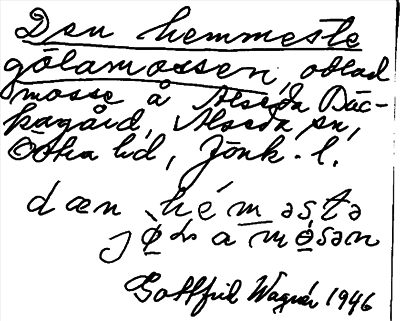 Den hemmeste
gölamossen, oblad
mosse å Alseda Bäc-
kagård, Alseda sn,
Östra hd, Jönk. l.
dæn hémǝstǝ
Gottfrid Wagnér 1946